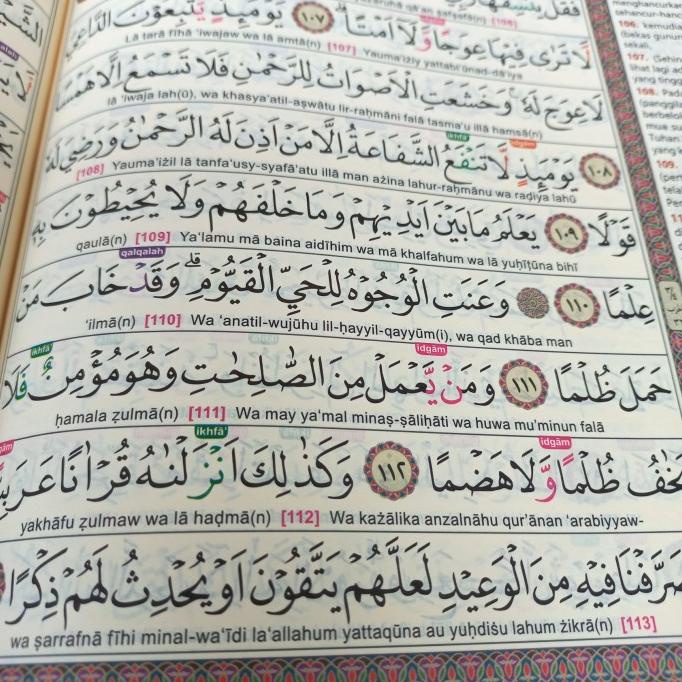 لَا تَرٰى فِيْهَا عِوَجًا وَّلَآ اَمْتًا ۗ ١٠٧ يَوْمَىِٕذٍ يَّتَّبِعُوْنَ الدَّاعِيَ
Lā tarā fīhā 'iwajaw wa lā amtā(n) [107] Yauma'iżiy yattabi'ūnad-dā'iya
لَا عِوَجَ لَهٗ ۚ وَخَشَعَتِ الْاَصْوَاتُ لِلرَّحْمٰنِ فَلَا تَسْمَعُ اِلَّا هَمْسًا
lā 'iwaja lah(ū), wa khasya'atil-aṣwātu lir-raḥmāni falā tasma'u illā hamsā(n)
ikhfā' idgām
١٠٨ يَوْمَىِٕذٍ لَّا تَنْفَعُ الشَّفَاعَةُ اِلَّا مَنْ اَذِنَ لَهُ الرَّحْمٰنُ وَرَضِيَ لَهٗ
[108] Yauma'iżil lā tanfa'usy-syafā'atu illā man ażina lahur-raḥmānu wa raḍiya lahū
قَوْلًا ١٠٩ يَعْلَمُ مَا بَيْنَ اَيْدِيْهِمْ وَمَا خَلْفَهُمْ وَلَا يُحِيْطُوْنَ بِهٖ
qaulā(n) [109] Ya'lamu mā baina aidīhim wa mā khalfahum wa lā yuḥīṭūna bihī
qalqalah
عِلْمًا ١١٠ وَعَنَتِ الْوُجُوْهُ لِلْحَيِّ الْقَيُّوْمِ ۗ وَقَدْ خَابَ مَنْ
'ilmā(n) [110] Wa 'anatil-wujūhu lil-ḥayyil-qayyūm(i), wa qad khāba man
idgām ikhfā'
حَمَلَ ظُلْمًا ١١١ وَمَنْ يَّعْمَلْ مِنَ الصّٰلِحٰتِ وَهُوَ مُؤْمِنٌ فَلَا
ḥamala ẓulmā(n) [111] Wa may ya'mal minaṣ-ṣāliḥāti wa huwa mu'minun falā
idgām ikhfā'
ظُلْمًا وَّلَا هَضْمًا ١١٢ وَكَذٰلِكَ اَنْزَلْنٰهُ قُرْاٰنًا
yakhāfu ẓulmaw wa lā haḍmā(n) [112] Wa każālika anzalnāhu qur'ānan 'arabiyyaw-
فِيْهِ مِنَ الْوَعِيْدِ لَعَلَّهُمْ يَتَّقُوْنَ اَوْ يُحْدِثُ لَهُمْ ذِكْرًا
wa ṣarrafnā fīhi minal-wa'īdi la'allahum yattaqūna au yuḥdiṡu lahum żikrā(n) [113]